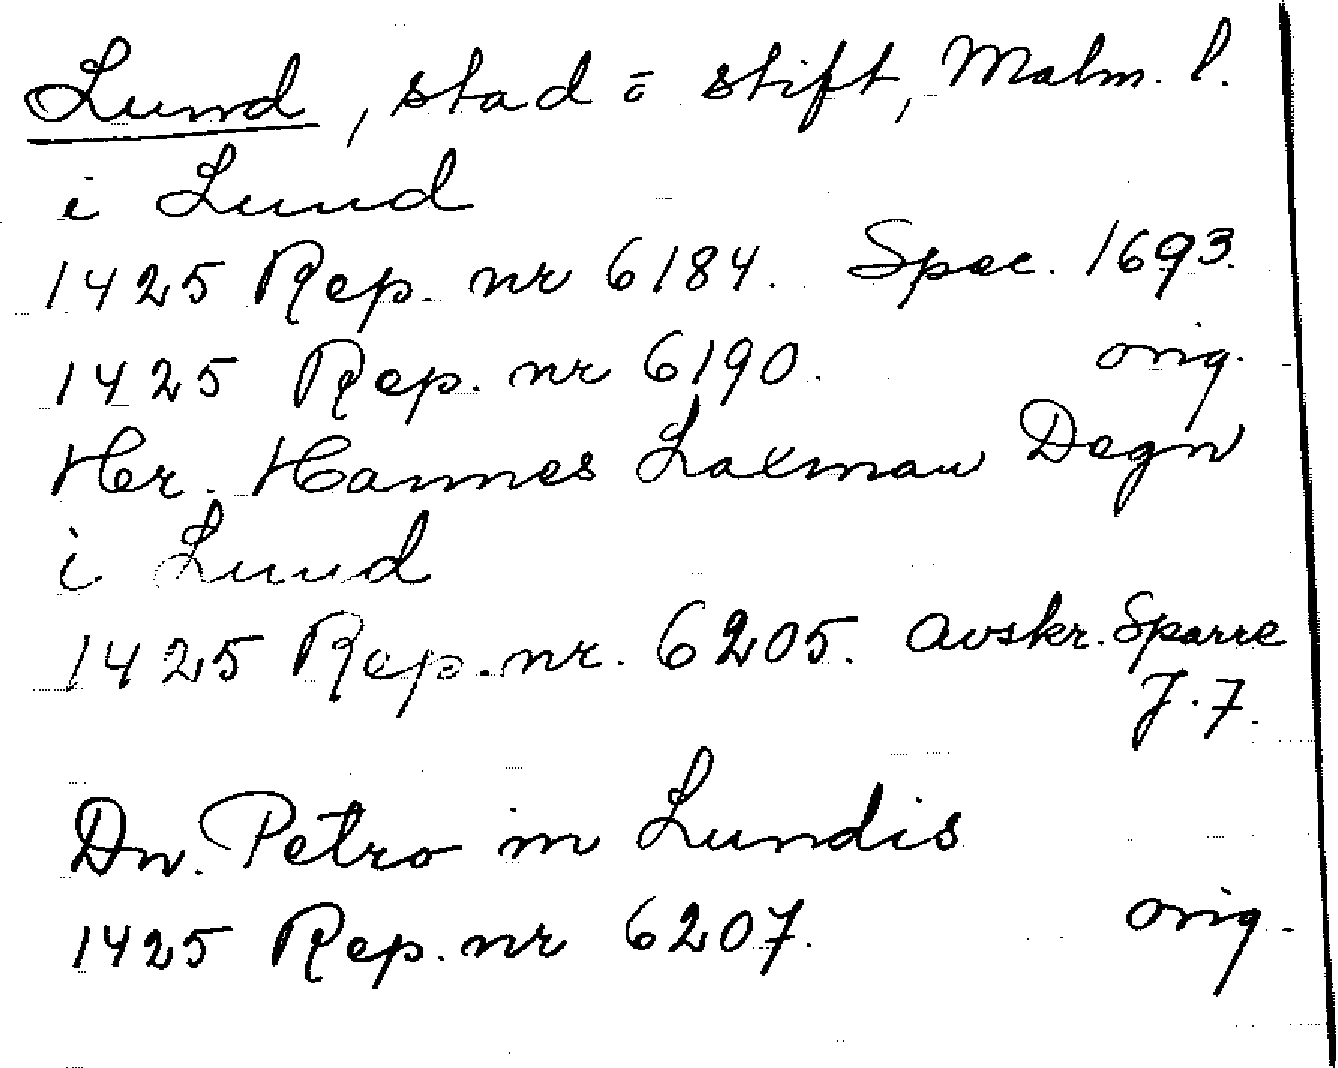 Lund, stad = stift, Malm. l.
i Lund
1425 Rep. nr 6184. Spec. 1693.
1425 Rep. nr 6190. orig.
Hr. Hannes Laxman Degn
i Lund
1425 Rep. nr. 6205. avskr. Sparre
J. 7.
Dn. Petro in Lundis
1425 Rep. nr 6207. orig.